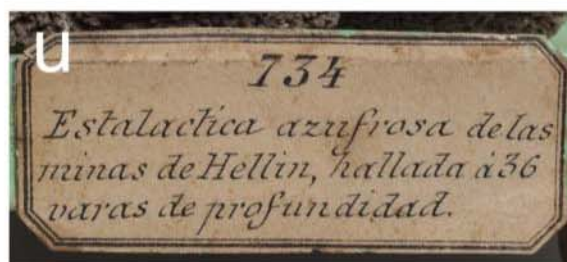 u
734
Estalactica azufrosa de las
minas de Hellin, hallada á 36
varas de profundidad.